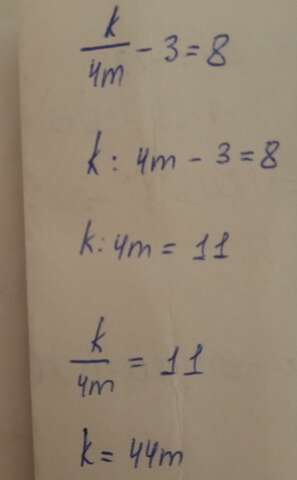 k/4m - 3 = 8
k : 4m - 3 = 8
k : 4m = 11
k/4m = 11
k = 44m